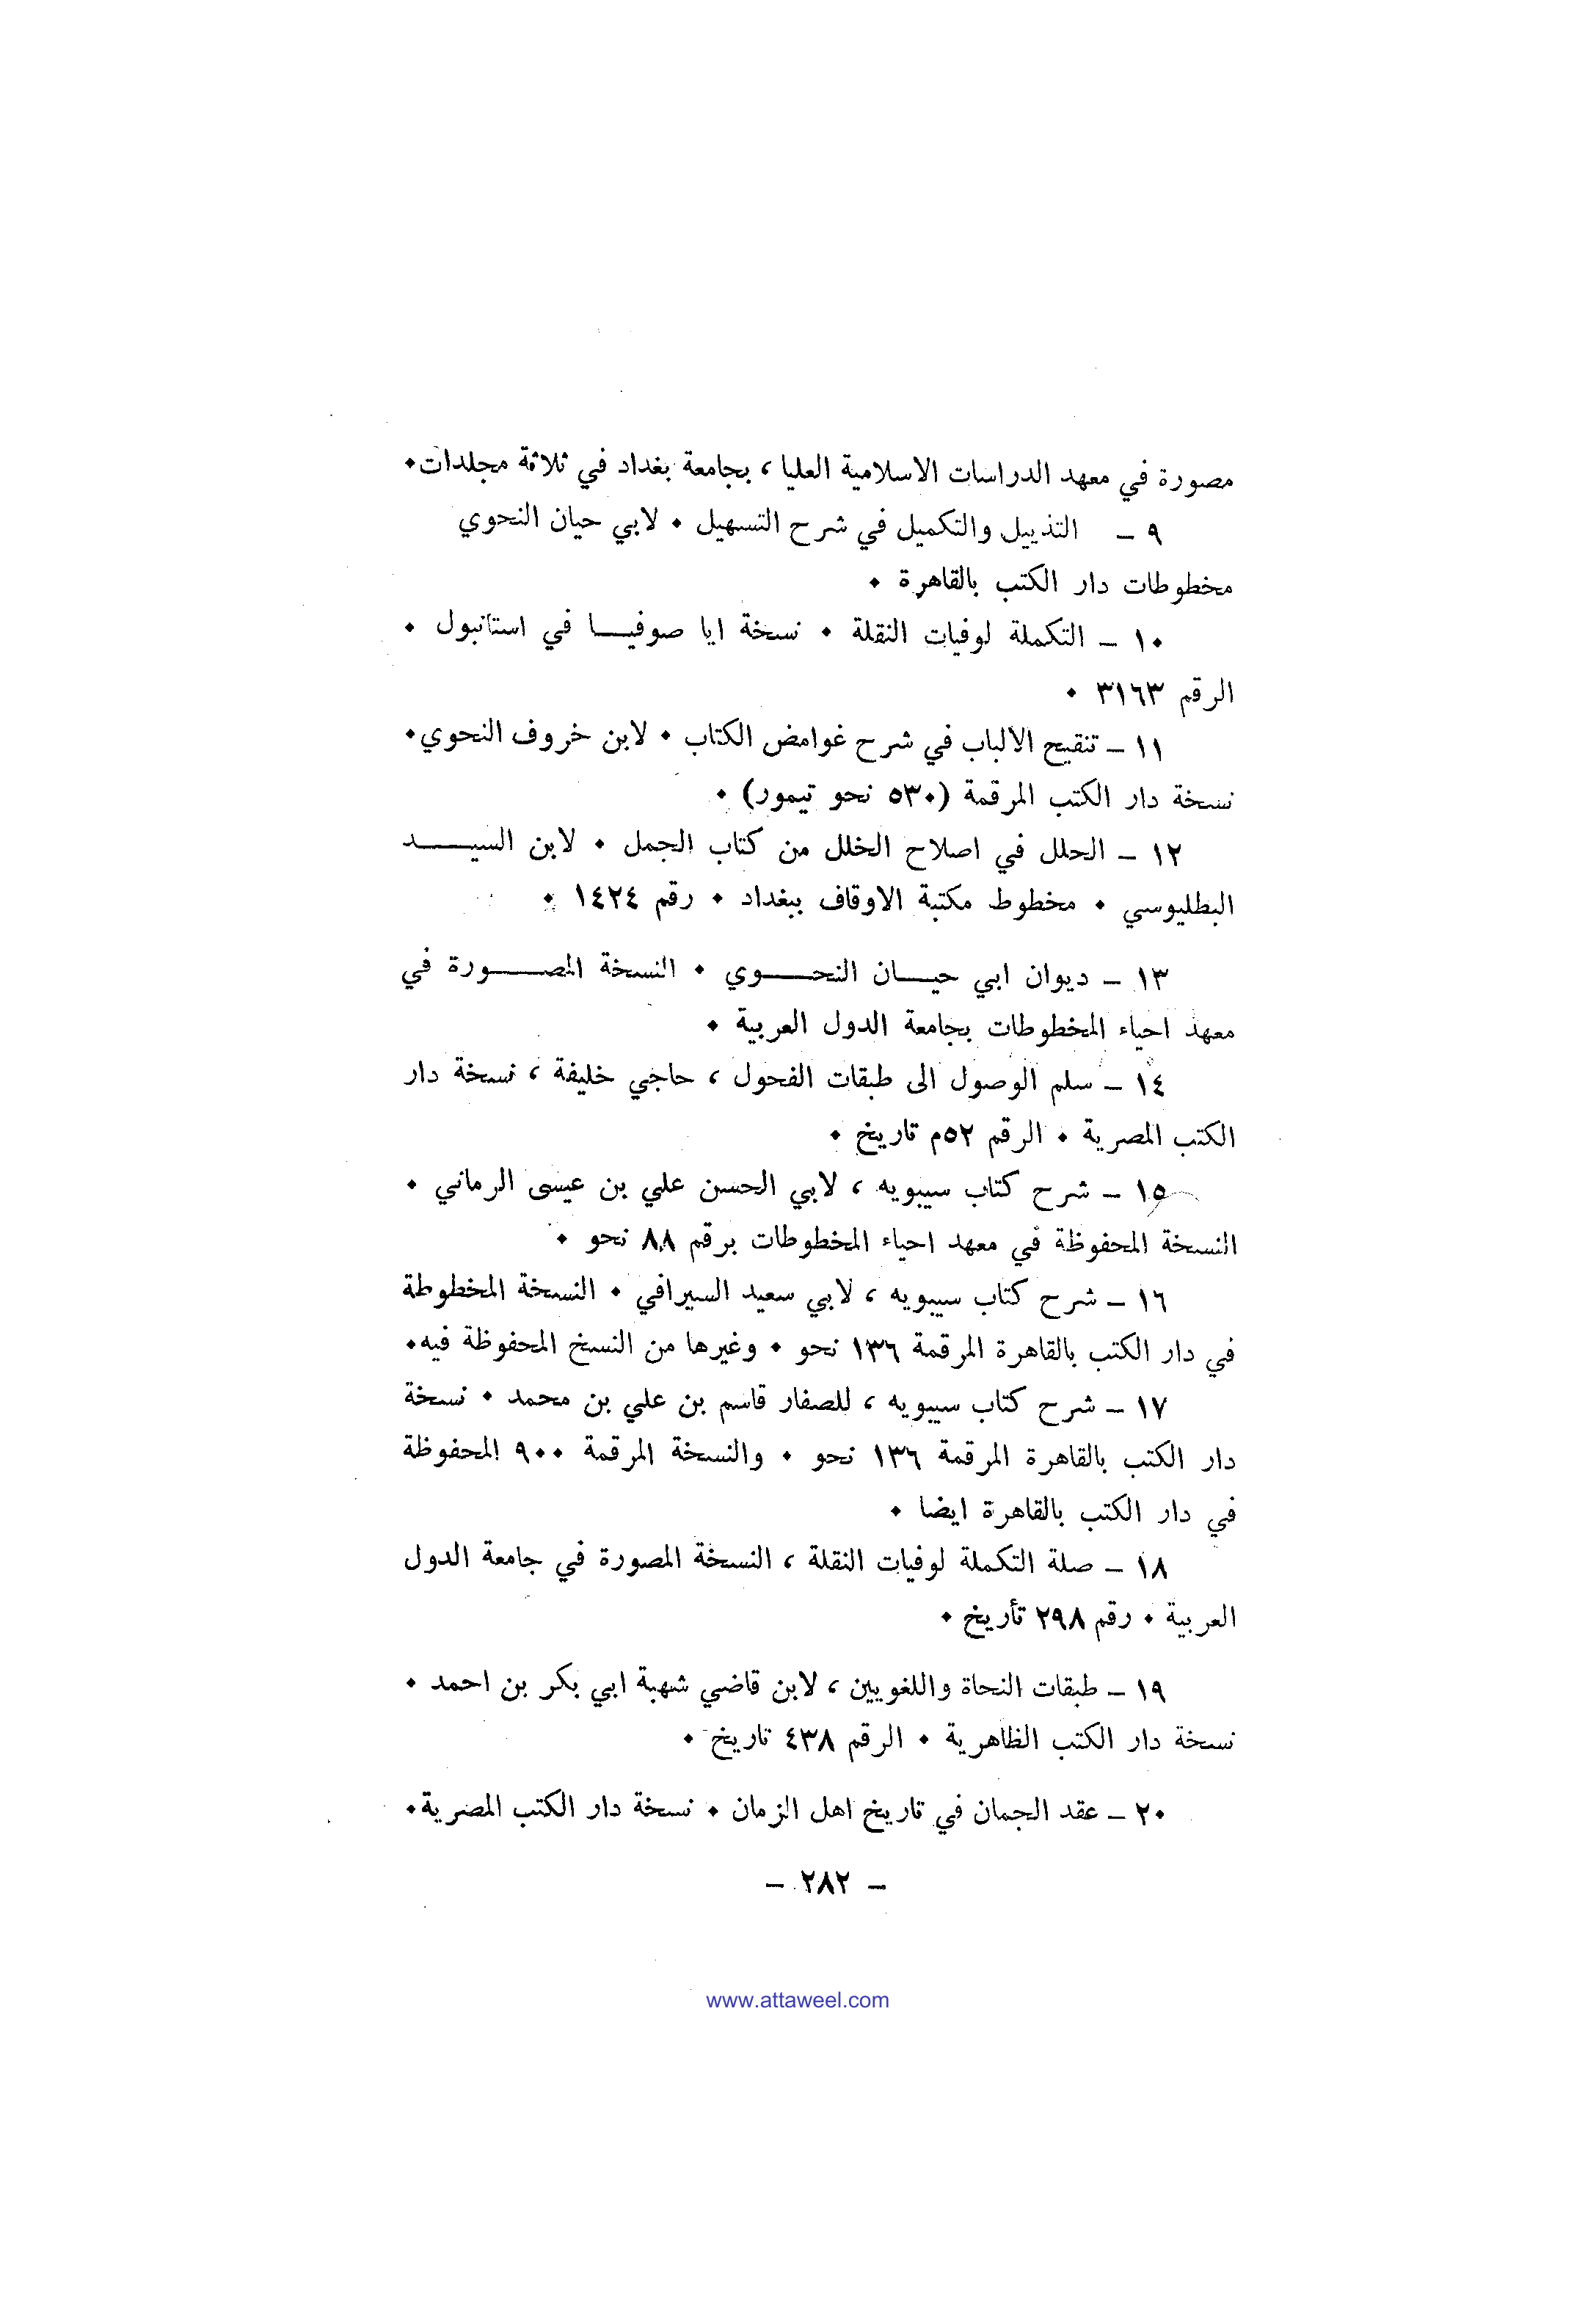 مصورة في معهد الدراسات الاسلامية العليا ، بجامعة بغداد في ثلاثة مجلدات٠
٩ – التذييل والتكميل في شرح التسهيل ٠ لابي حيان النحوي
مخطوطات دار الكتب بالقاهرة ٠
١٠ – التكملة لوفيات النقلة ٠ نسخة ايا صوفيــا في استانبول ٠
الرقم ٣١٦٣ ٠
١١ – تنقيح الالباب في شرح غوامض الكتاب ٠ لابن خروف النحوي٠
نسخة دار الكتب المرقمة (٥٣٠ نحو تيمور) ٠
١٢ – الحلل في اصلاح الخلل من كتاب الجمل ٠ لابن السيــــد
البطليوسي ٠ مخطوط مكتبة الاوقاف ببغداد ٠ رقم ١٤٢٤ ٠
١٣ – ديوان ابي حيـــان النحـــوي ٠ النسخة المصـــورة في
معهد احياء المخطوطات بجامعة الدول العربية ٠
١٤ – سلم الوصول الى طبقات الفحول ، حاجي خليفة ، نسخة دار
الكتب المصرية ٠ الرقم ٥٢م تاريخ ٠
١٥ – شرح كتاب سيبويه ، لابي الحسن علي بن عيسى الرماني ٠
النسخة المحفوظة في معهد احياء المخطوطات برقم ٨٨ نحو ٠
١٦ – شرح كتاب سيبويه ، لابي سعيد السيرافي ٠ النسخة المخطوطة
في دار الكتب بالقاهرة المرقمة ١٣٦ نحو ٠ وغيرها من النسخ المحفوظة فيه٠
١٧ – شرح كتاب سيبويه ، للصفار قاسم بن علي بن محمد ٠ نسخة
دار الكتب بالقاهرة المرقمة ١٣٦ نحو ٠ والنسخة المرقمة ٩٠٠ المحفوظة
في دار الكتب بالقاهرة ايضا ٠
١٨ – صلة التكملة لوفيات النقلة ، النسخة المصورة في جامعة الدول
العربية ٠ رقم ٢٩٨ تأريخ ٠
١٩ – طبقات النحاة واللغويين ، لابن قاضي شهبة ابي بكر بن احمد ٠
نسخة دار الكتب الظاهرية ٠ الرقم ٤٣٨ تاريخ ٠
٢٠ – عقد الجمان في تاريخ اهل الزمان ٠ نسخة دار الكتب المصرية٠
– ٢٨٢ –
www.attaweel.com